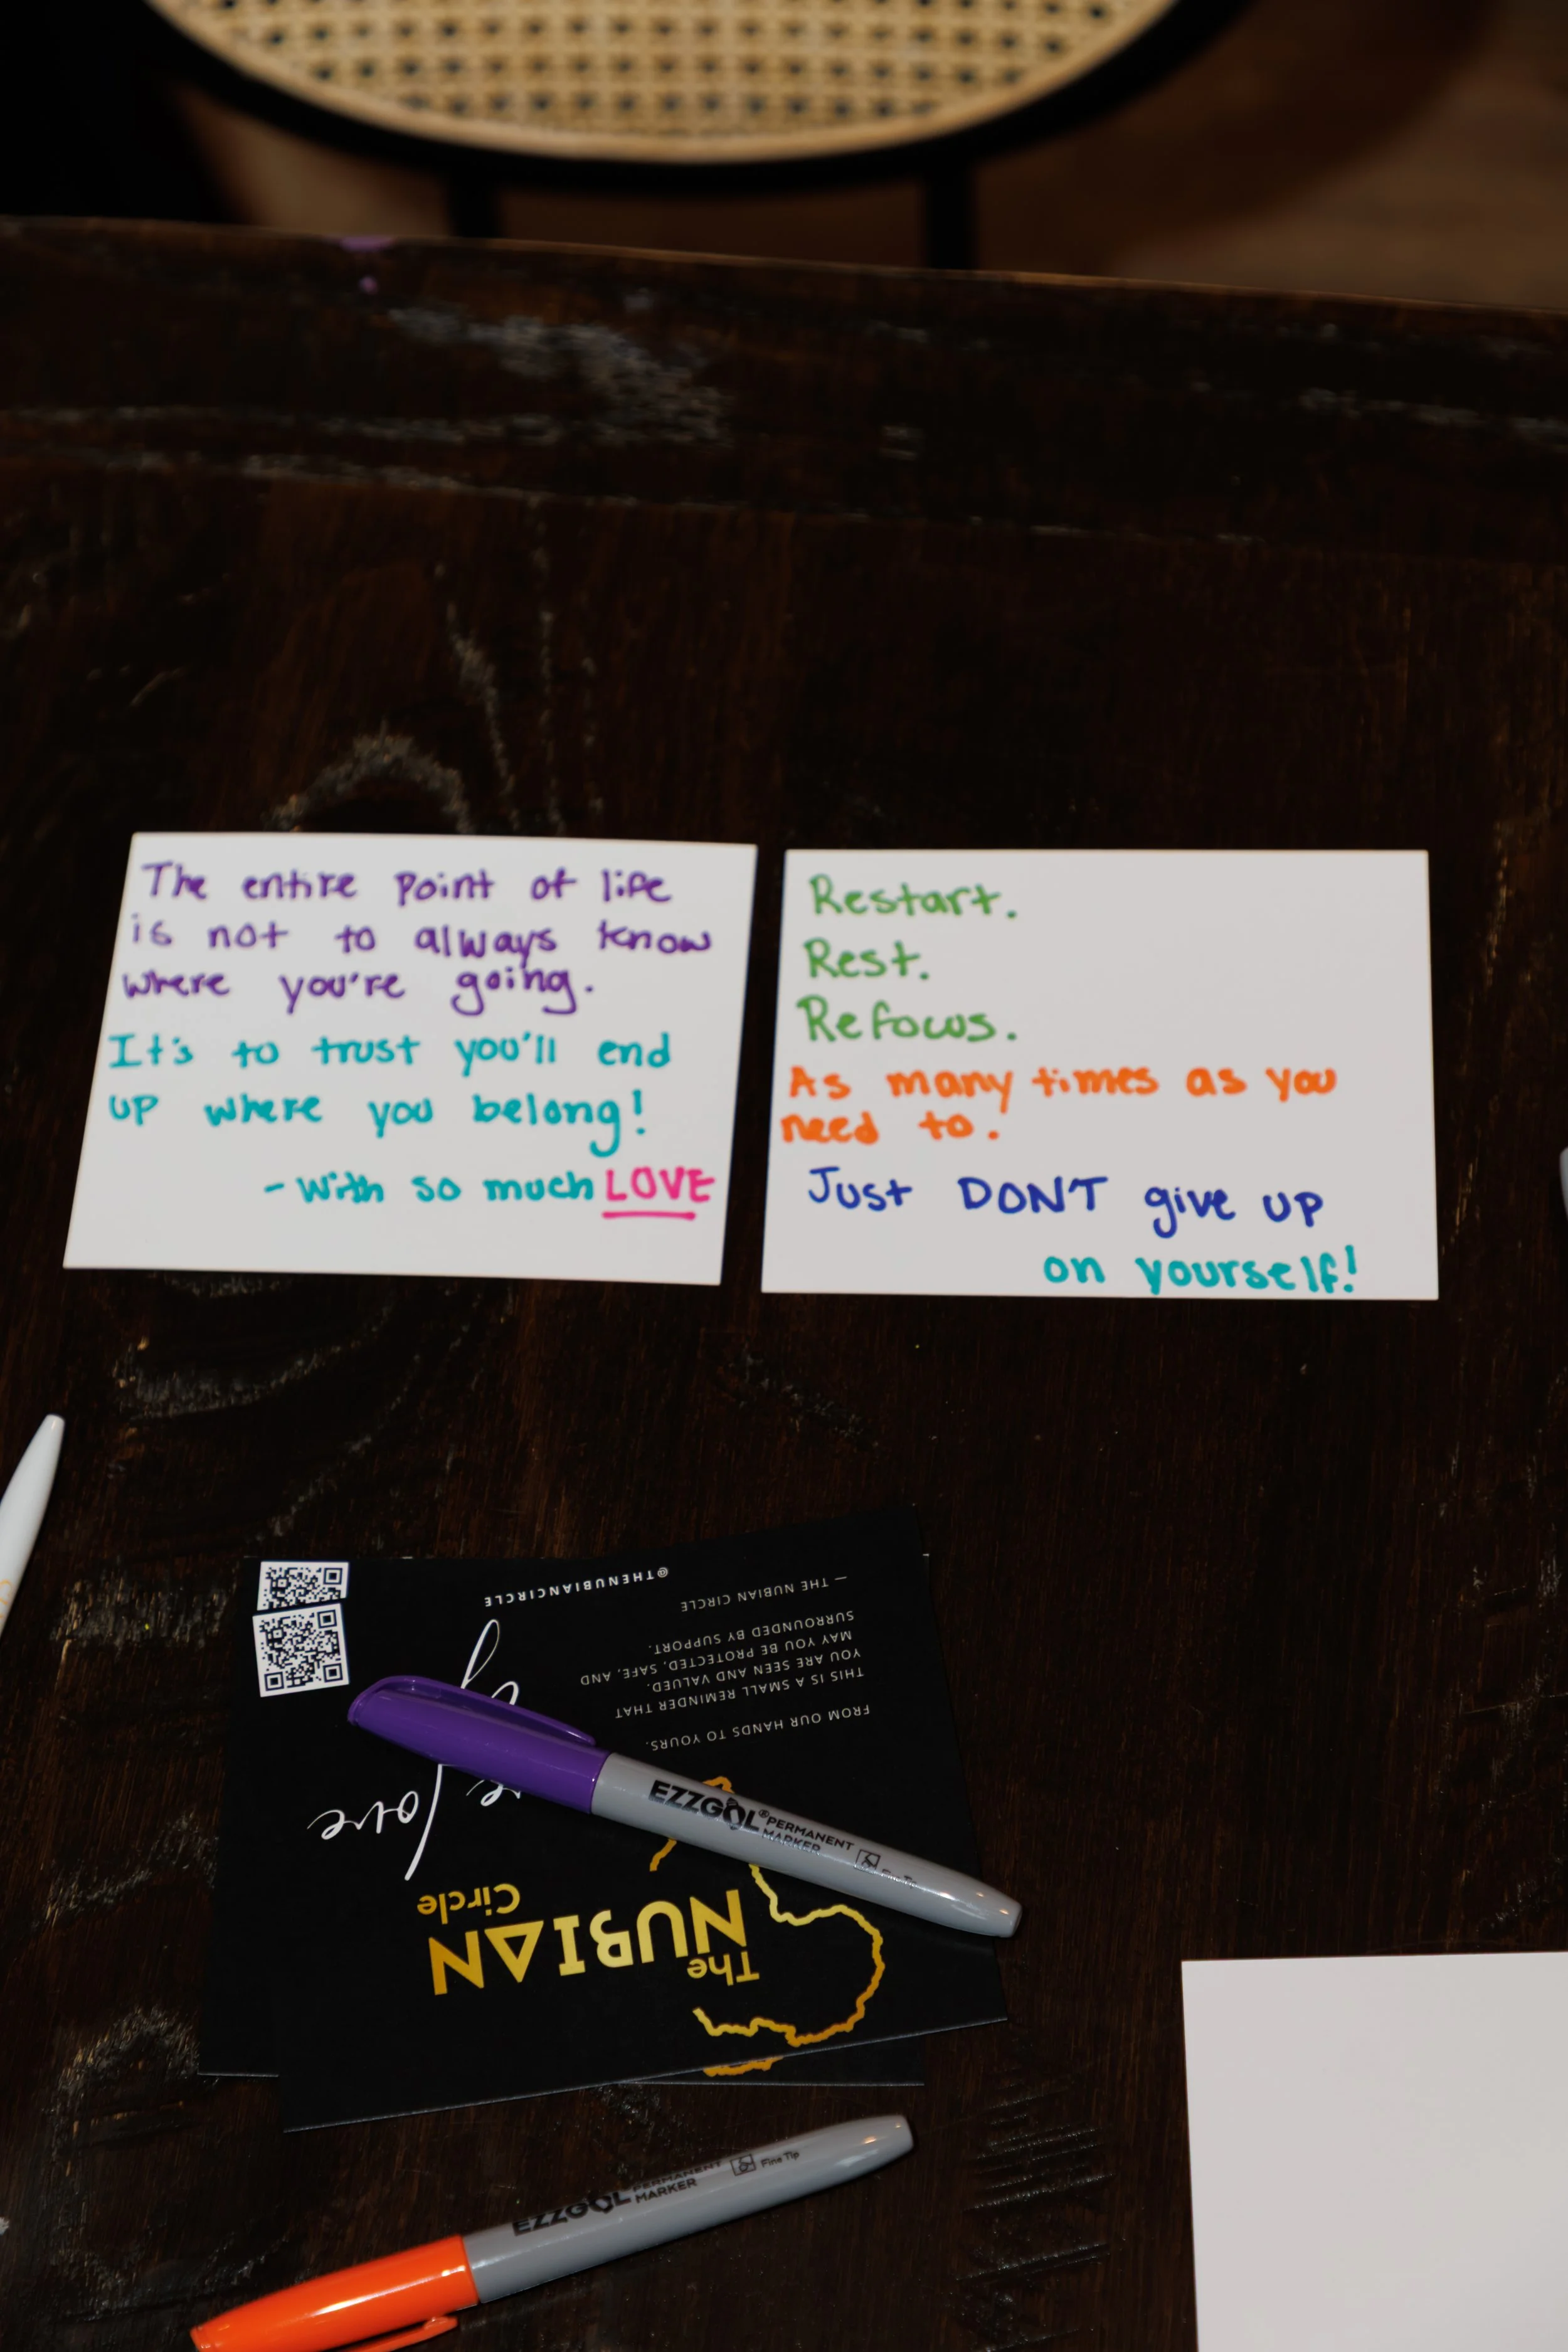 The entire point of life
is not to always know
where you're going.
It's to trust you'll end
up where you belong!
- With so much LOVE
Restart.
Rest.
Refocus.
As many times as you
need to.
Just DON'T give up
on yourself!
The
NUBIAN
Circle
love
FROM OUR HANDS TO YOURS.
THIS IS A SMALL REMINDER THAT
YOU ARE SEEN AND VALUED.
MAY YOU BE PROTECTED, SAFE, AND
SURROUNDED BY SUPPORT.
— THE NUBIAN CIRCLE
@THENUBIANCIRCLE
EZZGOL® PERMANENT
MARKER
EZZGOL PERMANENT
MARKER
Fine Tip